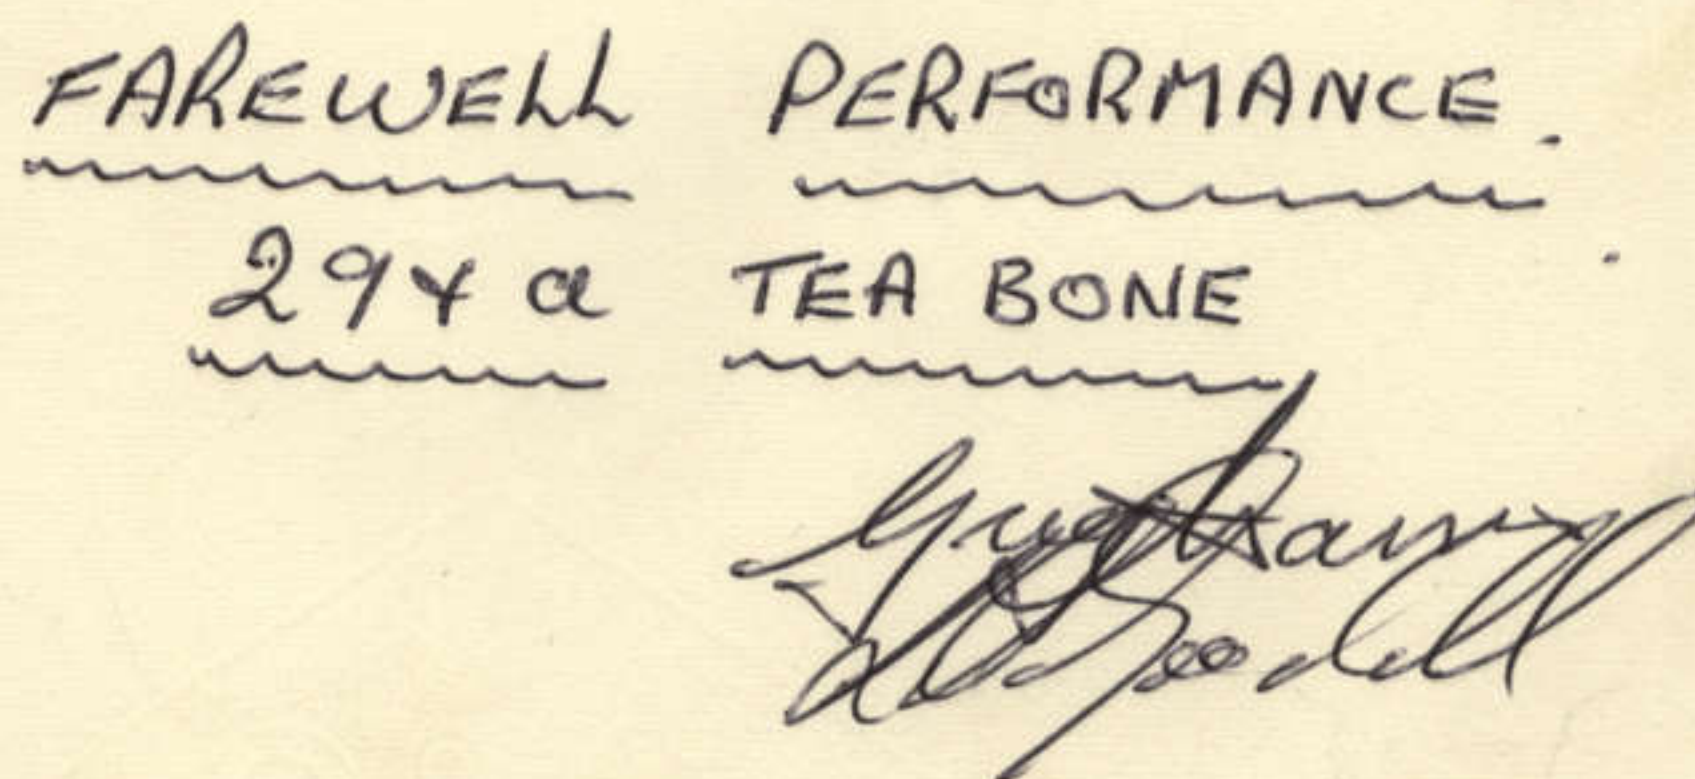 FAREWELL PERFORMANCE.
29 & a TEA BONE